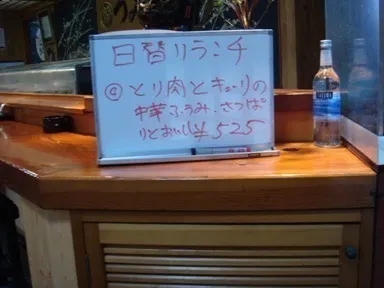 日替リランチ
@とり肉とキューリの
中華ふうみ、さっぱ
りとおいしい¥525